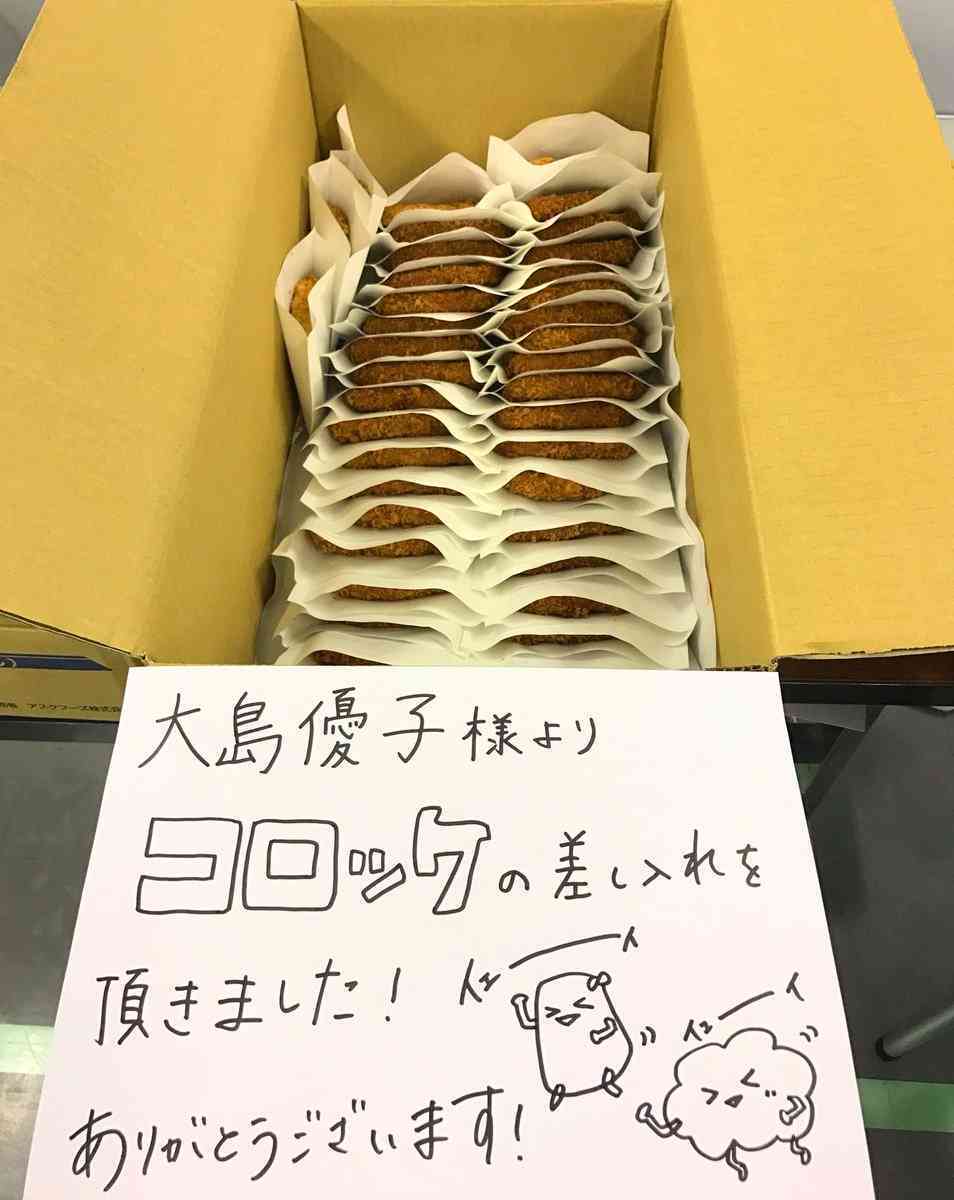 大島優子様より
コロッケの差し入れを
頂きました!
ありがとうございます!